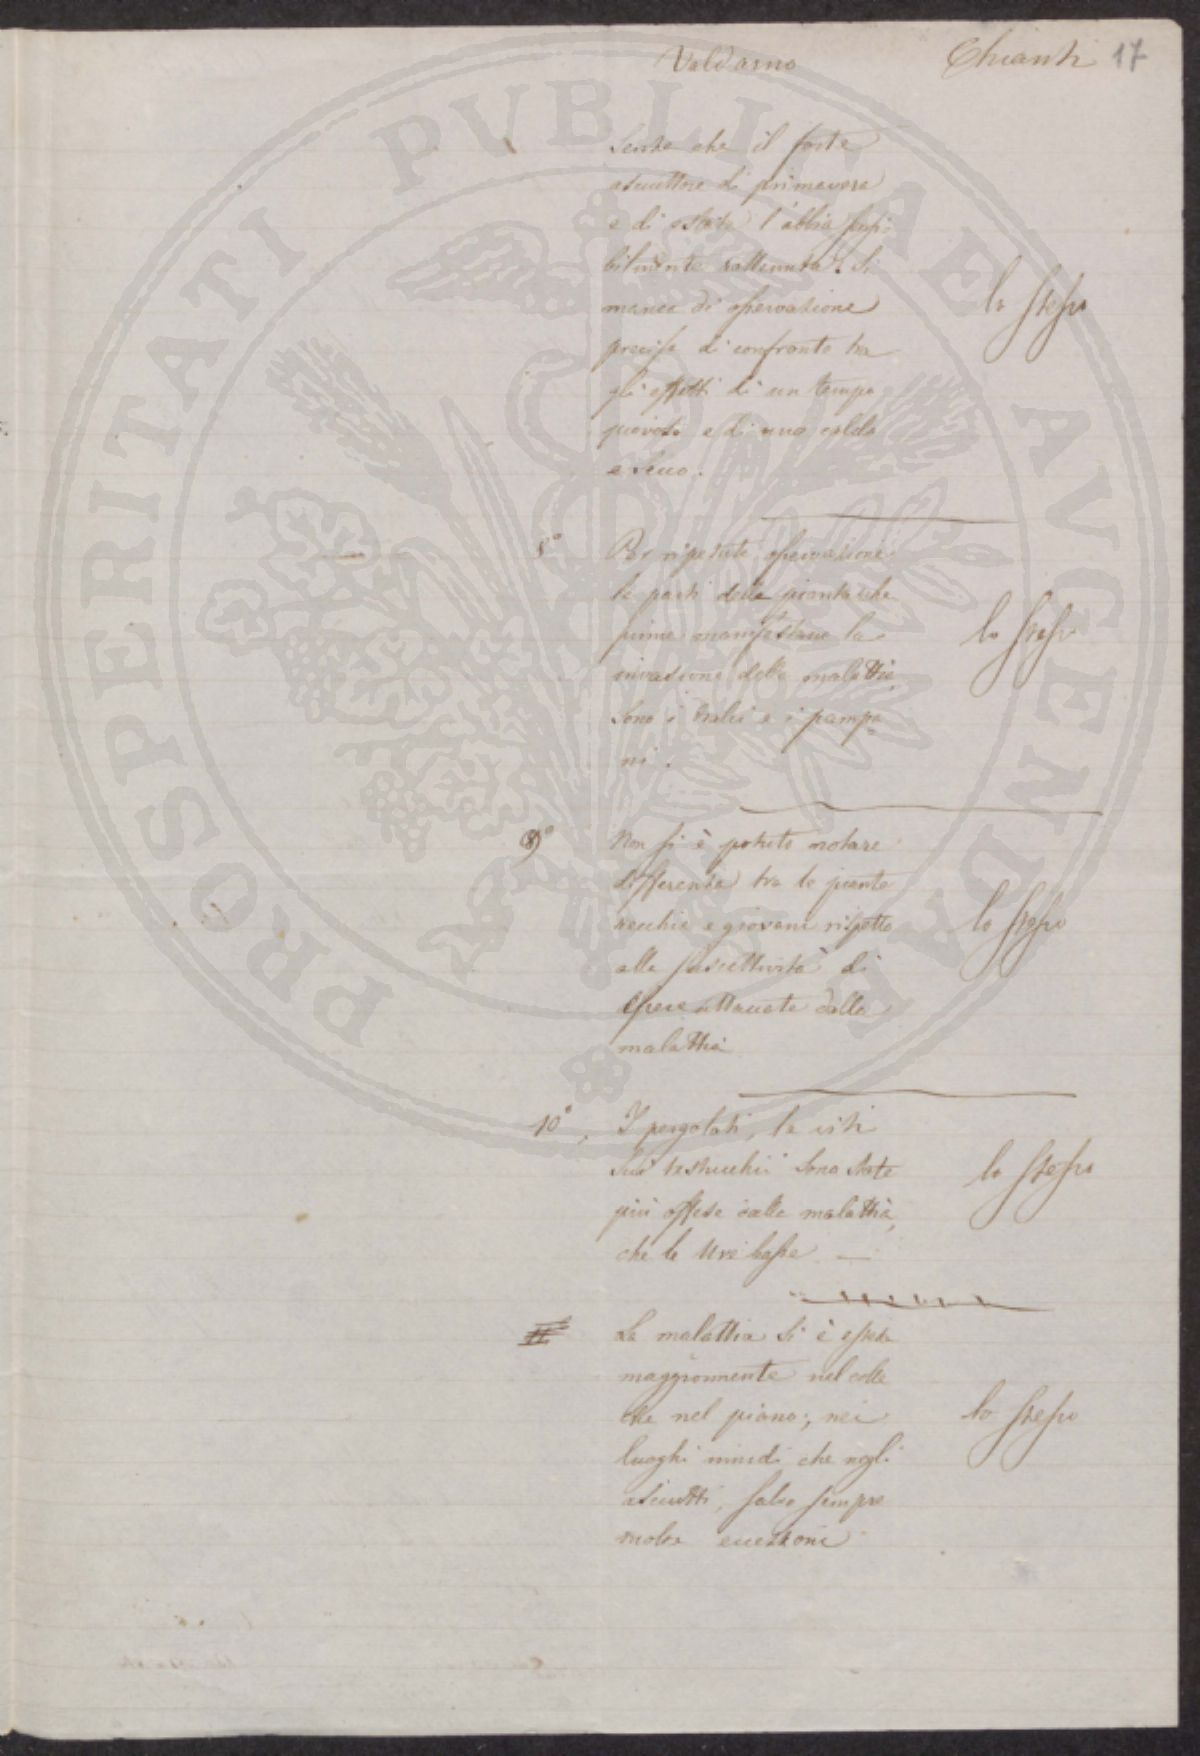 Valdarno
Chianti 17
senza che il forte
asciuttore di primavera
e di estate l'abbia sensi-
bilmente rattenuta. Si
manca di osservazione
precisa di confronto tra
gli effetti di un tempo
piovoso e di uno caldo
e secco.
lo stesso
8°
Per ripetute osservazioni
le parti della pianta che
prime manifestano la
invasione della malattia
sono i tralci e i pampa-
ni.
lo stesso
9°
Non si è potuto notare
differenza tra le piante
vecchie e giovani rispetto
alla suscettività di
essere attaccate dalla
malattia
lo stesso
10°.
I pergolati, le viti
sui testucchi sono state
più offese dalla malattia,
che le Uve basse —
lo stesso
La malattia si è estesa
maggiormente nel colle
che nel piano; nei
luoghi umidi che negli
asciutti, salvo sempre
molte eccezioni
lo stesso
PROSPERITATI PUBLICAE AVGENDAE